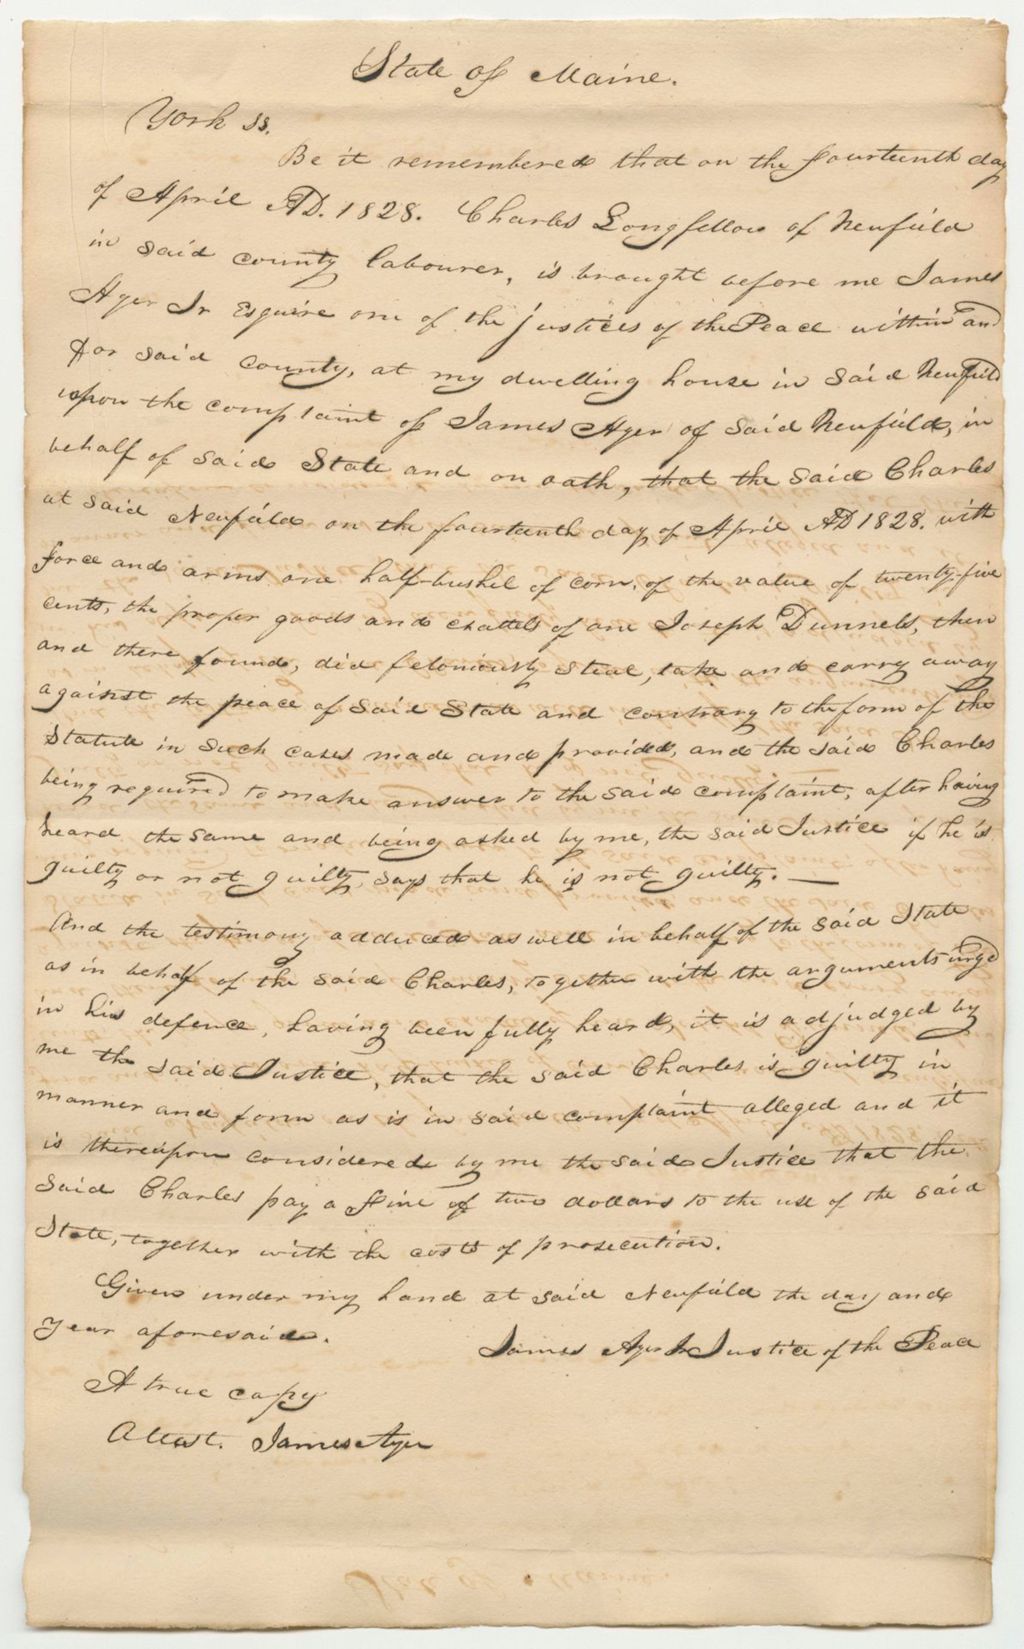 State of Maine.
York ss.
Be it remembered that on the fourteenth day
of April AD. 1828. Charles Longfellow of Newfield
in said county labourer, is brought before me James
Ayer Jr Esquire one of the justices of the Peace within and
for said county, at my dwelling house in said Newfield
upon the complaint of James Ayer of said Newfield, in
behalf of said State and on oath, that the said Charles
at said Newfield on the fourteenth day of April AD 1828. with
force and arms, one half-bushel of corn, of the value of twenty-five
cents, the proper goods and chattels of one Joseph Dunnels, then
and there found, did feloniously steal, take and carry away
against the peace of said State and contrary to the form of the
Statute in such cases made and provided, and the said Charles
being required to make answer to the said complaint, after having
heard the same and being asked by me, the said Justice if he is
guilty or not guilty, says that he is not guilty. —
And the testimony adduced as well in behalf of the said State
as in behalf of the said Charles, together with the arguments urged
in his defence, having been fully heard, it is adjudged by
me the said Justice, that the said Charles is guilty in
manner and form as is in said complaint alleged and it
is thereupon considered by me the said Justice that the
said Charles pay a fine of two dollars to the use of the said
State, together with the costs of prosecution.
Given under my hand at said Newfield the day and
year aforesaid.
James Ayer Jr Justice of the Peace
A true copy
Attest. James Ayer